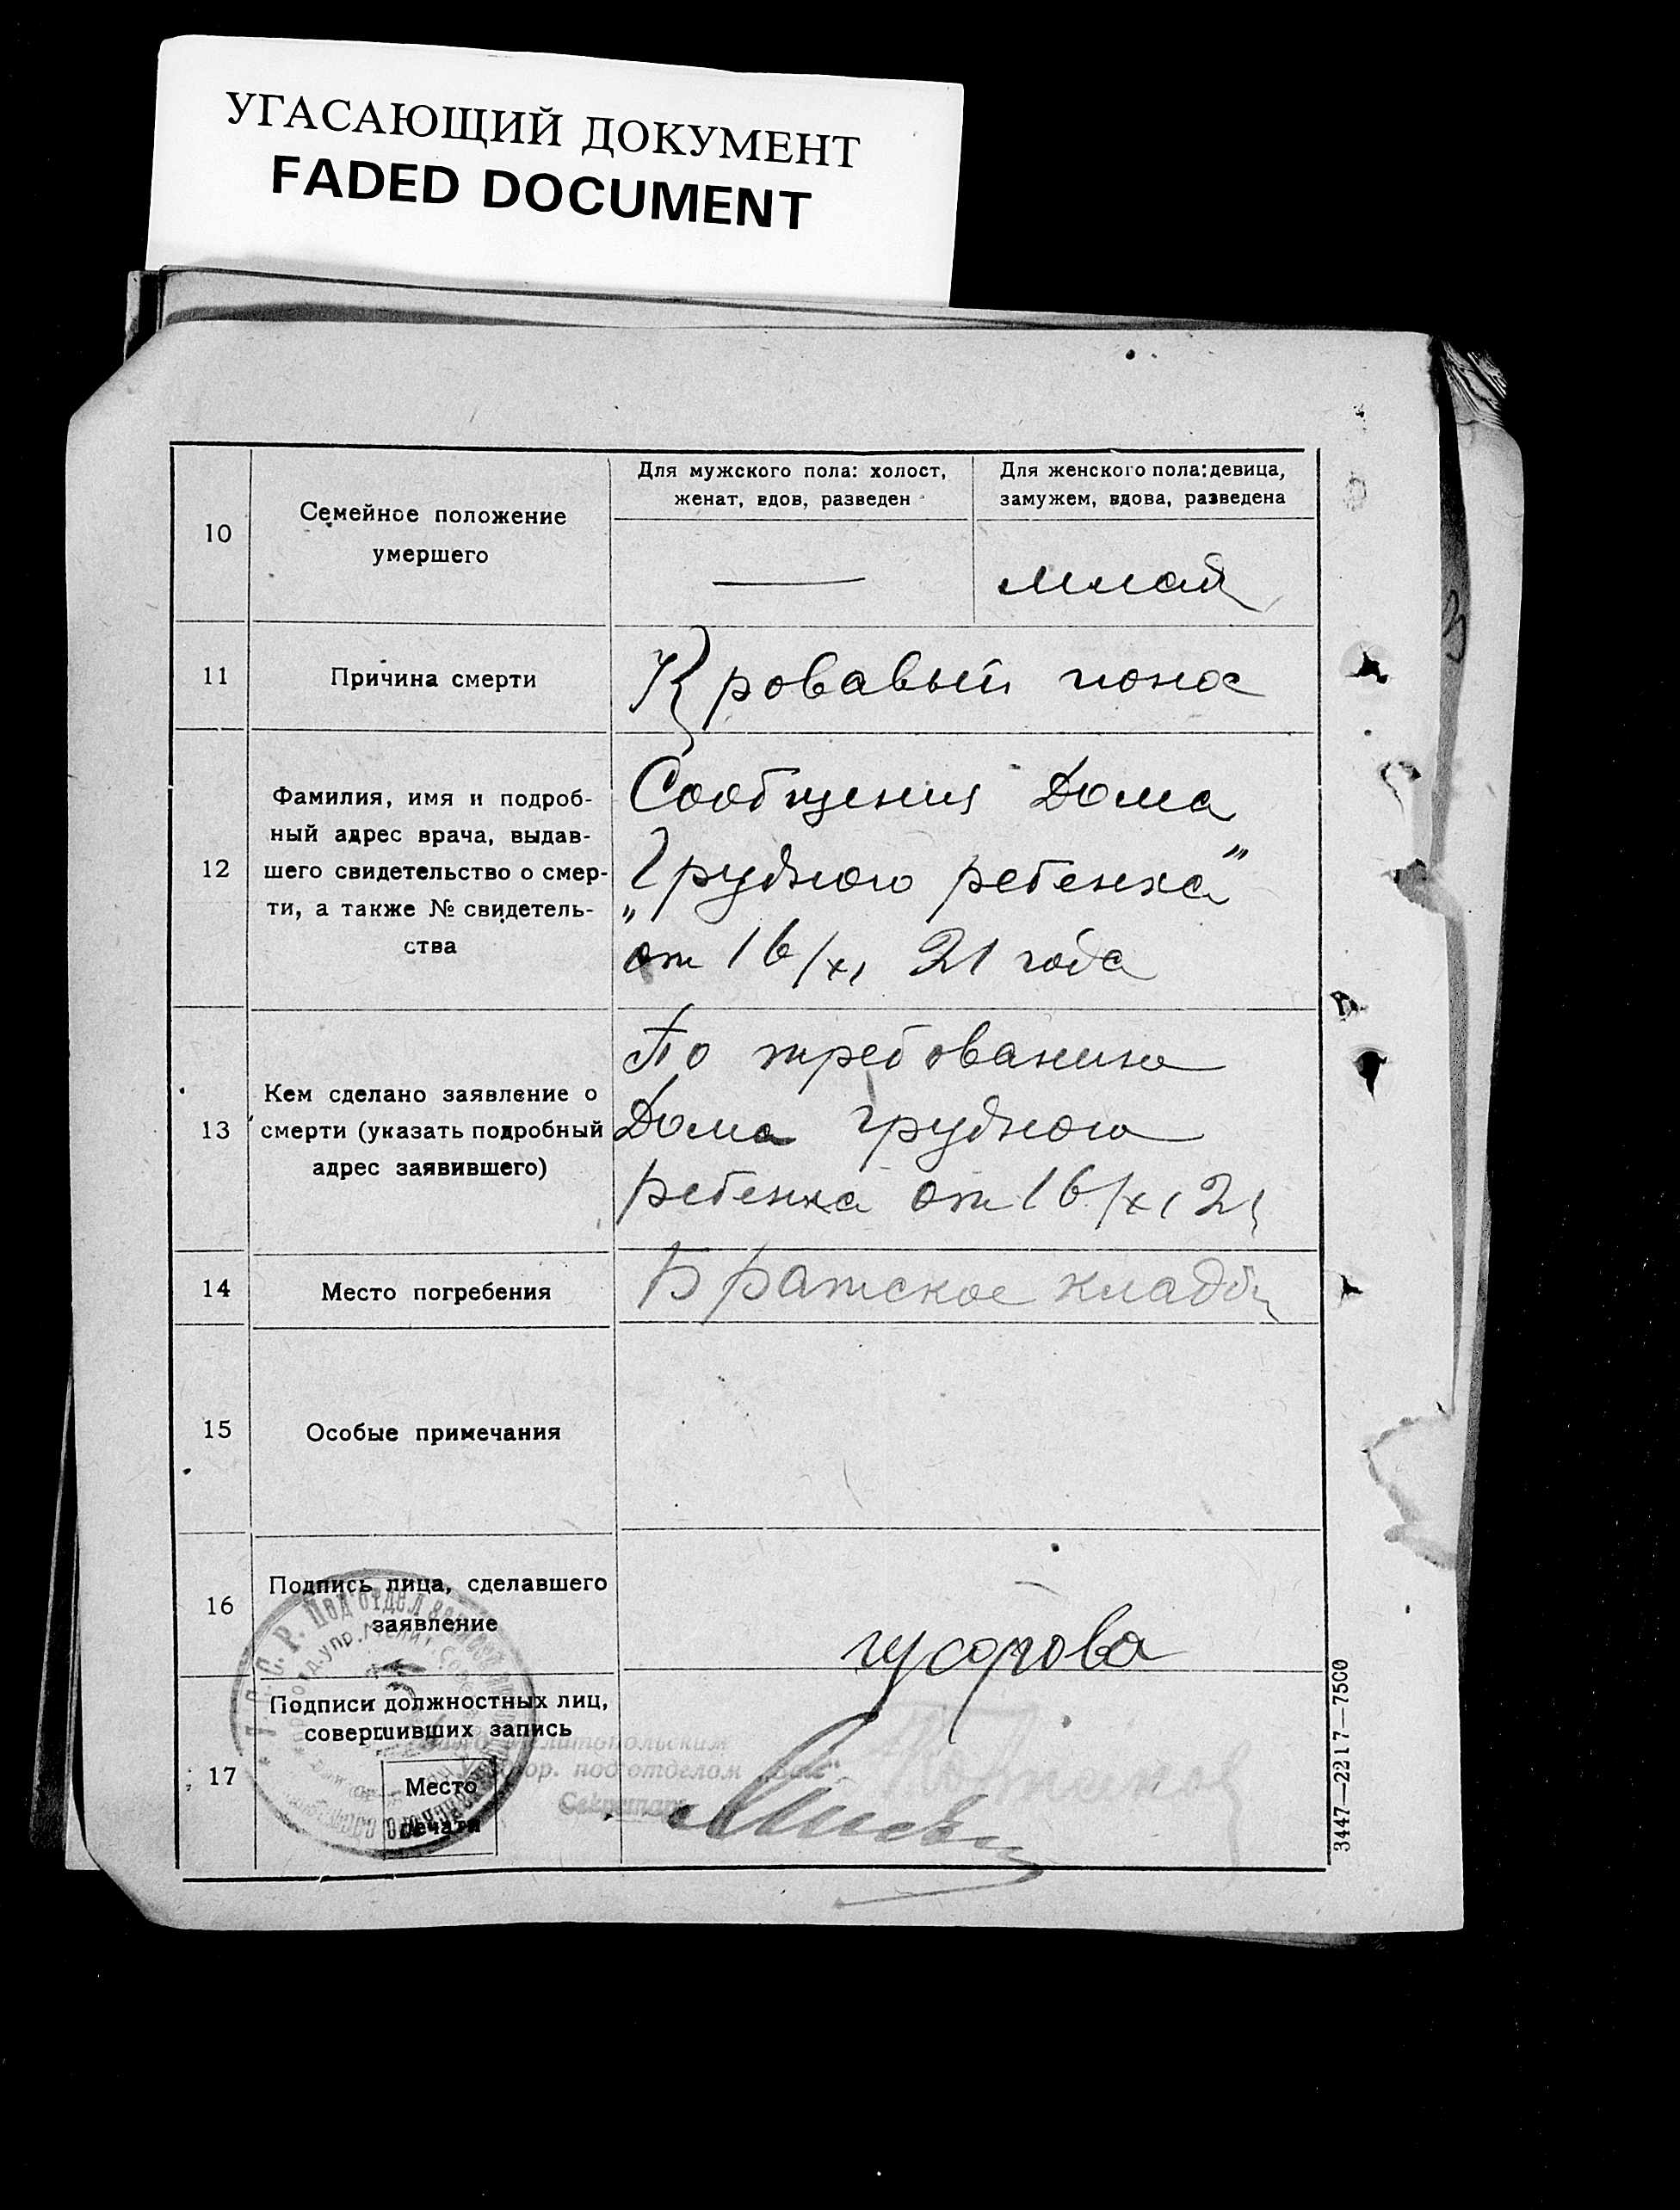 УГАСАЮЩИЙ ДОКУМЕНТ
FADED DOCUMENT
10
Семейное положение
умершего
Для мужского пола: холост,
женат, вдов, разведен
—
Для женского пола: девица,
замужем, вдова, разведена
млад
11
Причина смерти
Кровавый понос
12
Фамилия, имя и подроб-
ный адрес врача, выдав-
шего свидетельство о смер-
ти, а также № свидетель-
ства
Сообщения Дома
„Грудного ребенка"
от 16/XI 21 года
13
Кем сделано заявление о
смерти (указать подробный
адрес заявившего)
По требованию
Дома грудного
ребенка от 16/XI 21
14
Место погребения
Братское кладб
15
Особые примечания
16
Подпись лица, сделавшего
заявление
17
Подписи должностных лиц,
совершивших запись
Место
печати
Мелитопольским
подотделом
Секретарь
3447—2217—7500